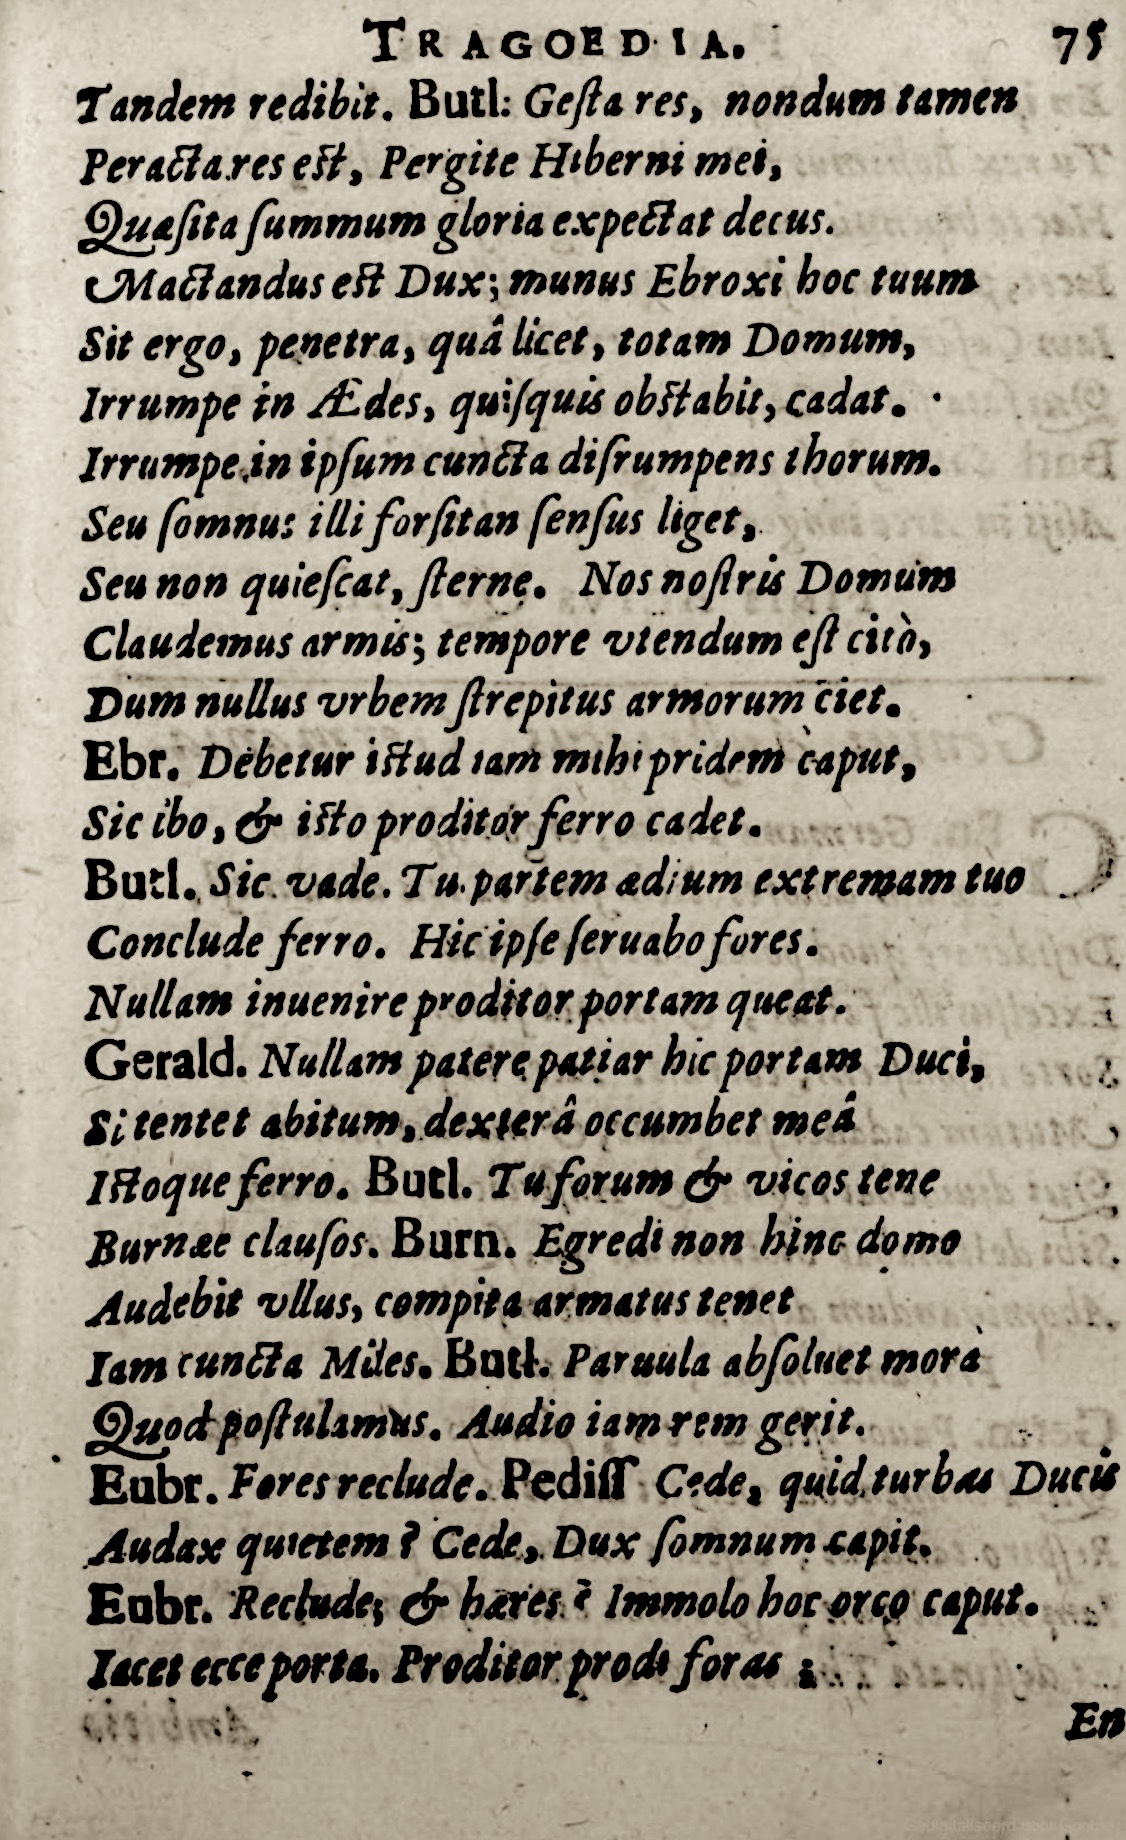 TRAGOEDIA. 75
Tandem redibit. Butl: Geſta res, nondum tamen
Peracta res eſt, Pergite Hiberni mei,
Quæſita ſummum gloria expectat decus.
Mactandus eſt Dux; munus Ebroxi hoc tuum
Sit ergo, penetra, quâ licet, totam Domum,
Irrumpe in Ædes, quiſquis obſtabit, cadat.
Irrumpe in ipſum cuncta diſrumpens thorum.
Seu ſomnus illi forſitan ſenſus liget,
Seu non quieſcat, ſterne. Nos noſtris Domum
Claudemus armis; tempore vtendum eſt citò,
Dum nullus vrbem ſtrepitus armorum ciet.
Ebr. Debetur iſtud iam mihi pridem caput,
Sic ibo, & iſto proditor ferro cadet.
Butl. Sic vade. Tu partem ædium extremam tuo
Conclude ferro. Hic ipſe ſeruabo fores.
Nullam inuenire proditor portam queat.
Gerald. Nullam patere patiar hic portam Duci,
Si tentet abitum, dexterâ occumbet meâ
Iſtoque ferro. Butl. Tu forum & vicos tene
Burnæe clauſos. Burn. Egredi non hinc domo
Audebit vllus, compita armatus tenet
Iam cuncta Miles. Butl. Paruula abſoluet mora
Quod poſtulamus. Audio iam rem gerit.
Eubr. Fores reclude. Pediſſ Cede, quid turbas Ducis
Audax quietem? Cede, Dux ſomnum capit.
Eubr. Reclude; & hæres? Immolo hoc orco caput.
Iacet ecce porta. Proditor prodi foras;
En